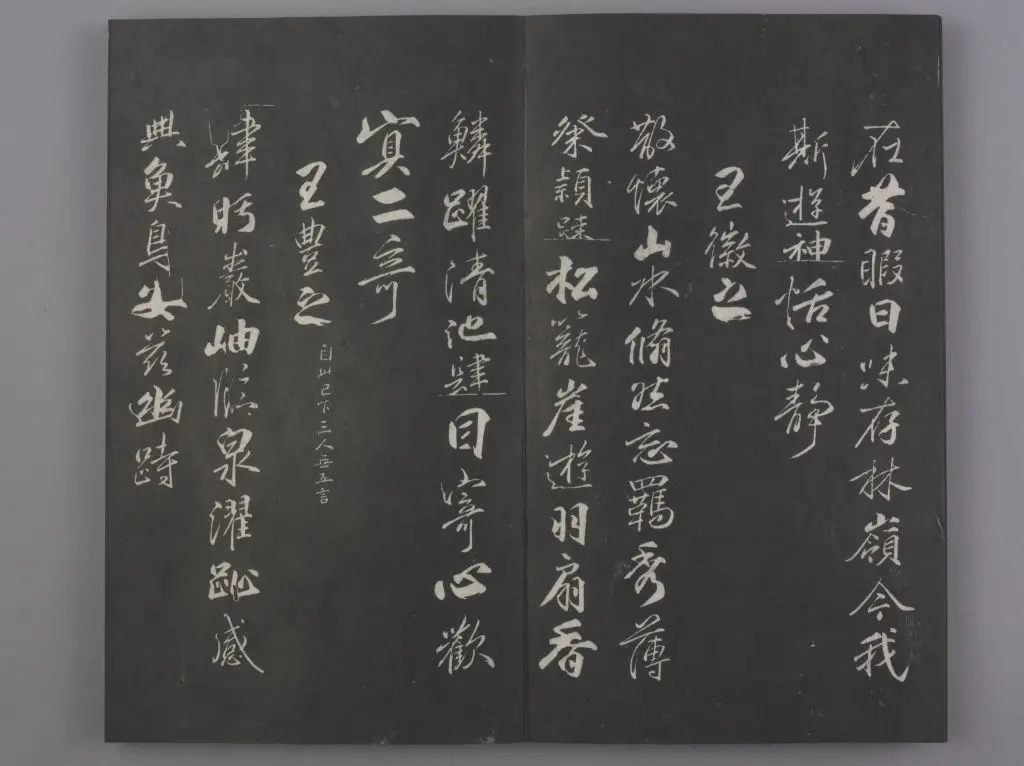 在昔暇日味存林嶺今我
斯遊神恬心静
王徽之
散懷山水翛然忘羈秀薄
粲穎踈松籠崖遊羽扇香
鱗躍清池歸目寄心歡
冥二奇
王豊之
自此已下三人無五言
肆眄巖岫臨泉濯趾感
興魚鳥安茲幽跱